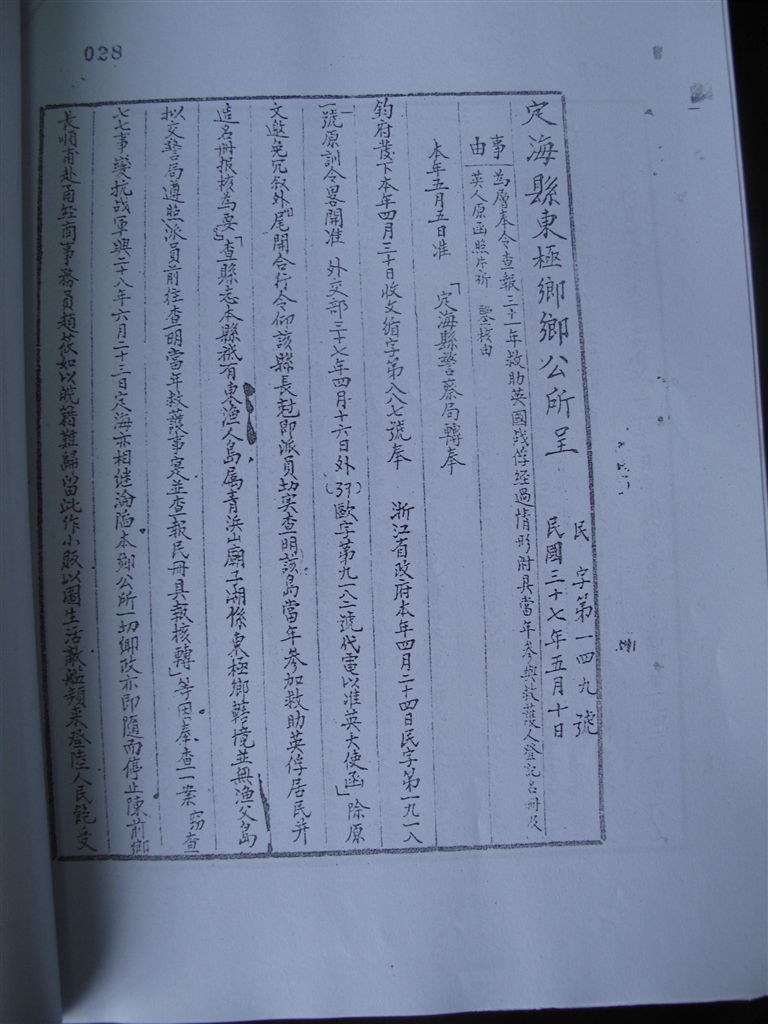 028
民字第一四九號
民國三十七年五月十日
定海縣東極鄉鄉公所呈
事由
為層奉令查報三十一年救助英國戰俘經過情形附具當年參與救護人登記名冊及
英人原函照片祈 鑒核由
本年五月五日准 「定海縣警察局轉奉
鈞府發下本年四月三十日收文循字第八八七號奉 浙江省政府本年四月二十四日民字第一九一八
一號原訓令畧開准 外交部三十七年四月十六日外(37)歐字第九一八二號代電以准英大使函」除原
文邀免冗敘外尾開合行令仰該縣長赶即派員切实查明該島當年參加救助英俘居民并
造名冊报核為要「查縣志本縣祗有東漁人島属青浜山廟子湖係東極鄉轄境並無漁父島
拟交警局遵照派員前往查明當年救護事实並查報民冊具報核轉」等因奉查一案 窃查
七七事變抗战軍興二十八年六月二十三日定海亦相继淪陷本鄉公所一切鄉政亦即隨而停止陳前鄉
長順甫赴甬经商事務員趙莜如以晥籍難歸留此作小販以圖生活敵艦頻来登陸人民飽受